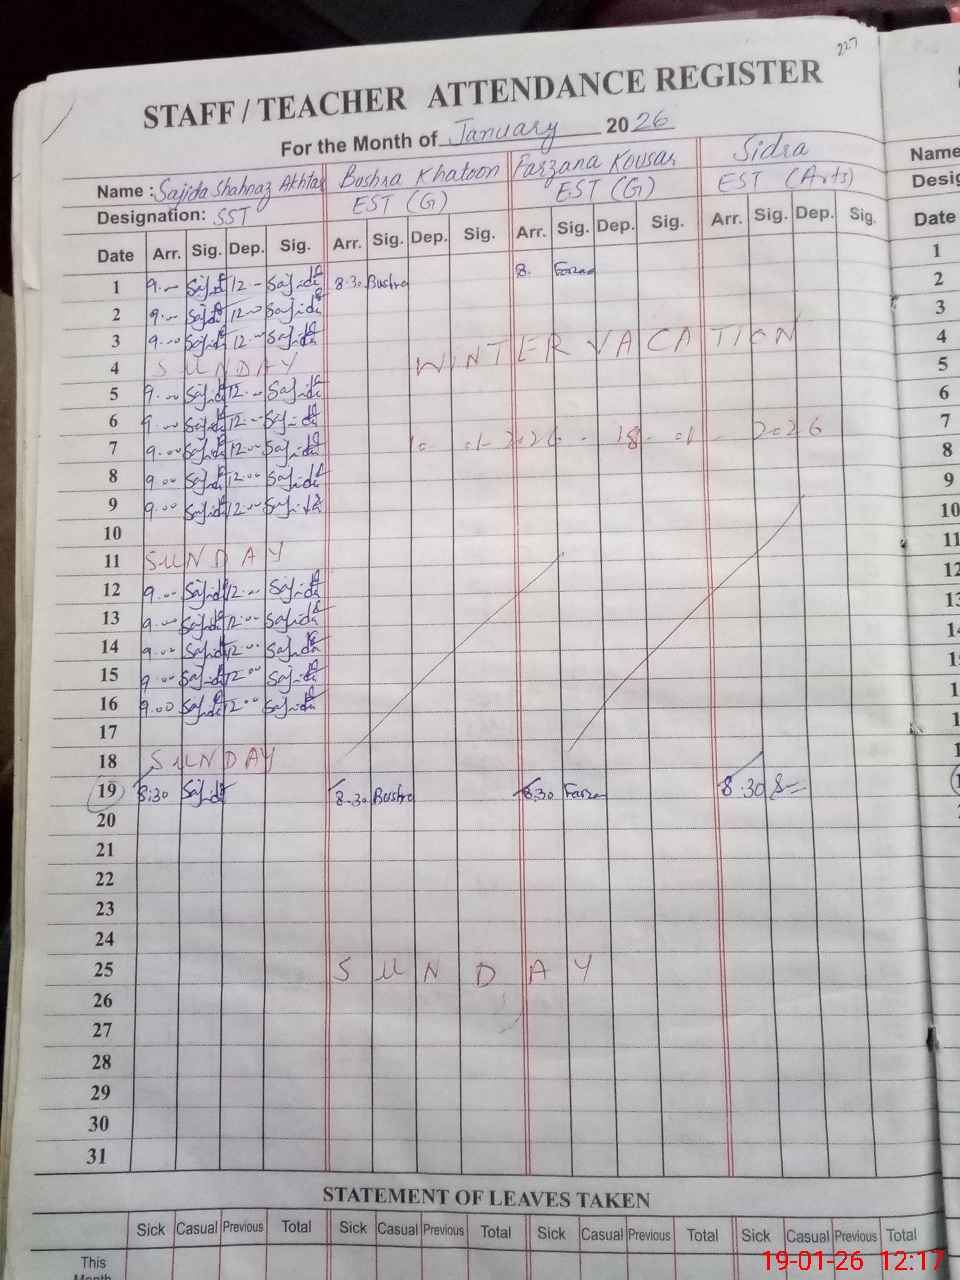 227
STAFF / TEACHER ATTENDANCE REGISTER
For the Month of January 2026
Name : Sajida Shahnaz Akhtar Bushra Khatoon Farzana Kousar Sidra
Designation: SST EST (G) EST (G) EST (Arts)
Date Arr. Sig. Dep. Sig. Arr. Sig. Dep. Sig. Arr. Sig. Dep. Sig. Arr. Sig. Dep. Sig.
1 9.— Sajida 12 — Sajida 8.30 Bushra 8. Farzana
2 9.— Sajida 12— Sajida
3 9.00 Sajida 12.00 Sajida
4 SUNDAY WINTER VACATION
5 9.00 Sajida 12.— Sajida
6 9.00 Sajida 12.— Sajida
7 9.00 Sajida 12.00 Sajida 01-2026 - 18-01-2026
8 9.00 Sajida 12.00 Sajida
9 9.00 Sajida 12.00 Sajida
10
11 SUNDAY
12 9.00 Sajida 12.— Sajida
13 9.00 Sajida 12.00 Sajida
14 9.00 Sajida 12.00 Sajida
15 9.00 Sajida 12.00 Sajida
16 9.00 Sajida 12.00 Sajida
17
18 SUNDAY
19 8:30 Sajida 8.30 Bushra 8.30 Farzana 8.30
20
21
22
23
24
25 SUNDAY
26
27
28
29
30
31
STATEMENT OF LEAVES TAKEN
Sick Casual Previous Total Sick Casual Previous Total Sick Casual Previous Total Sick Casual Previous Total
This
Month
Name
Date
1
2
3
4
5
6
7
8
9
10
11
12
19-01-26 12:17